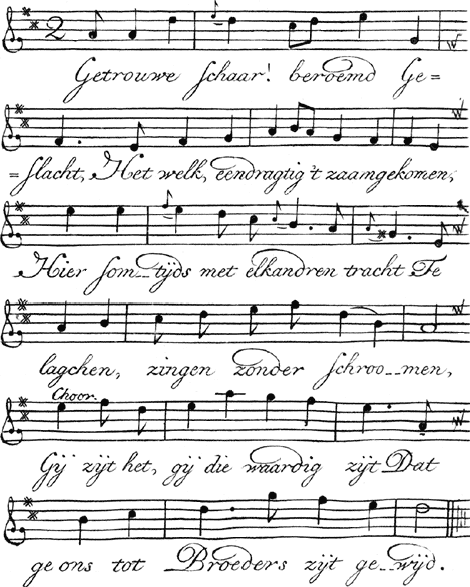 Getrouwe schaar! beroemd Ge=
=slacht, Het welk, eendragtig 't zaamgekomen,
Hier som--tijds met elkandren tracht Te
lagchen, zingen zonder schroo---men,
Choor.
Gij zijt het, gij die waardig zijt Dat
ge ons tot Broeders zijt ge--wijd.